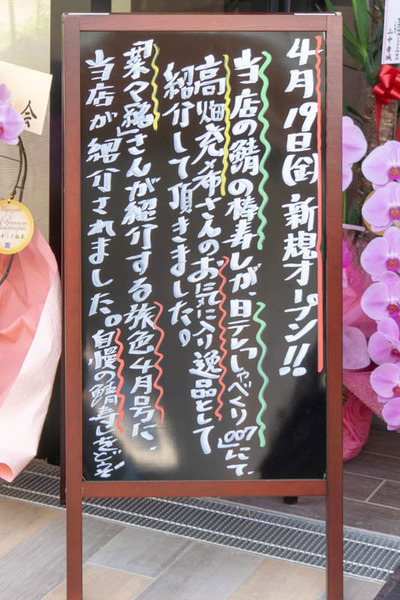 4月19日(金)新規オープン!!
当店の鯖の棒寿しが、日テレ「しゃべくり007」にて
高畑充希さんのお気に入り逸品として
紹介して頂きました。
「菜々緒」さんが紹介する旅色4月号に、
当店が紹介されました。自慢の鯖寿しをどうぞ!
会